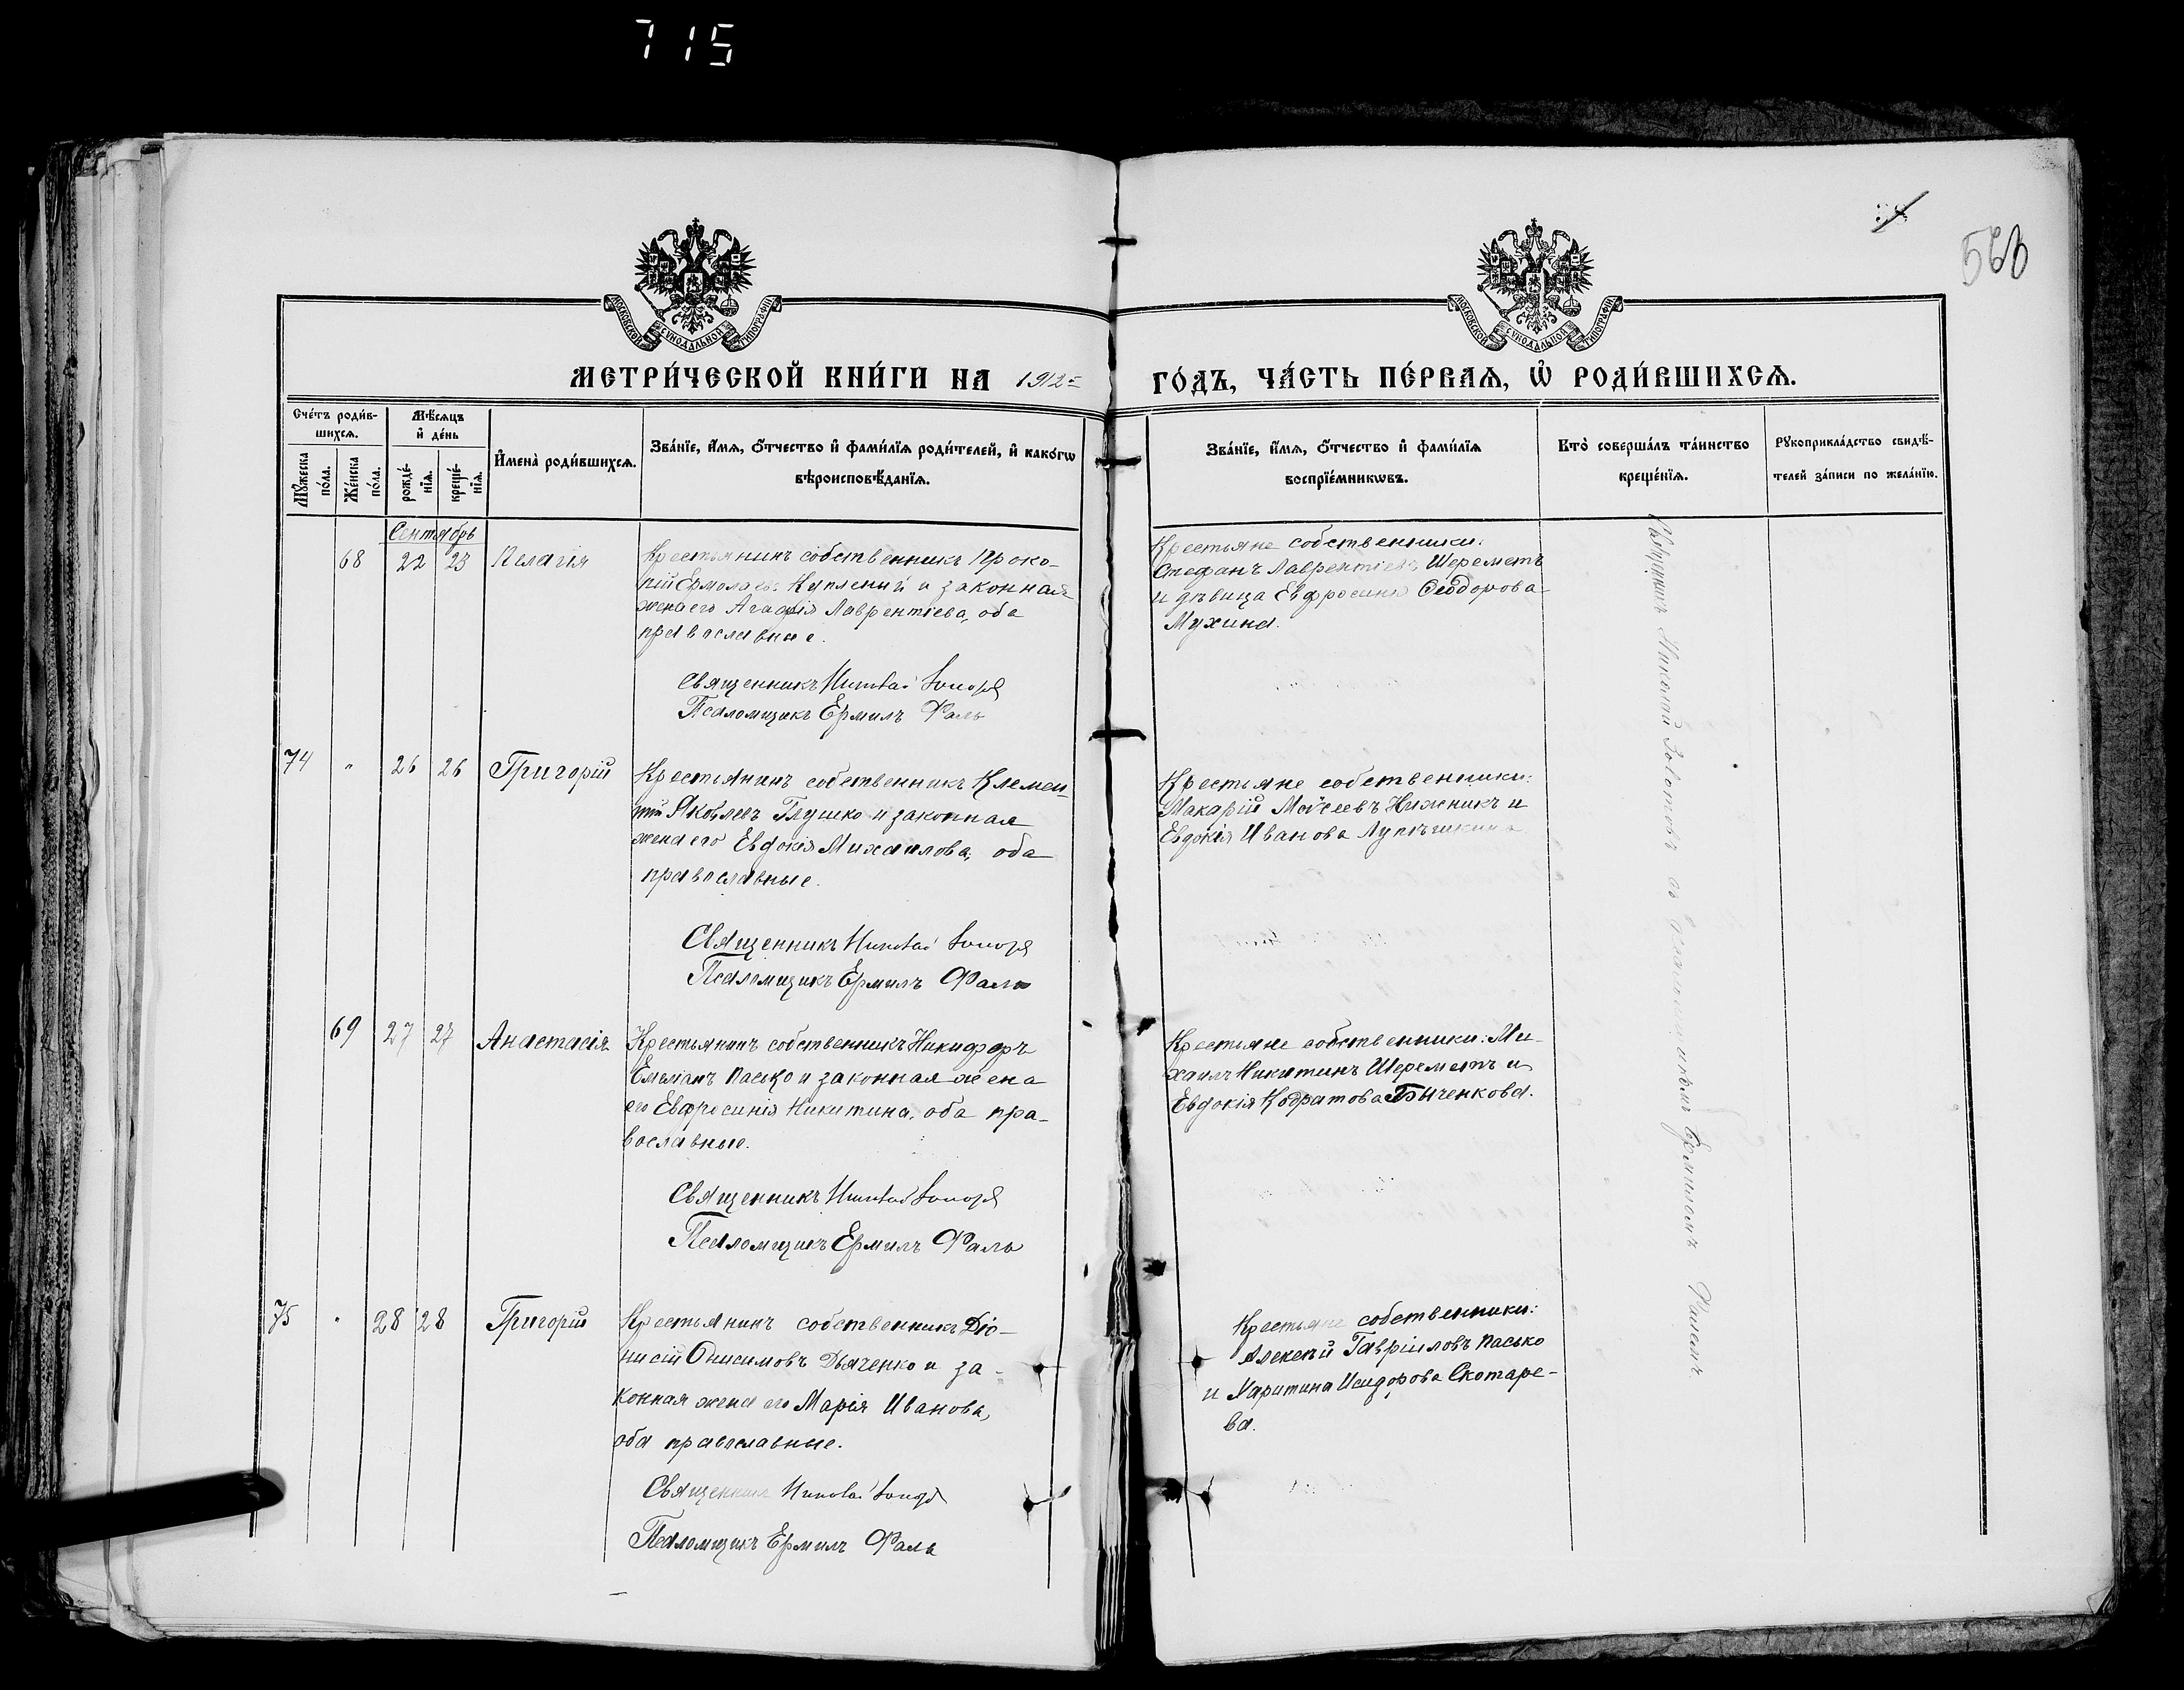 715
560
МОСКОВСКОЙ СѴНОДАЛЬНОЙ ТИПОГРАФІИ
МОСКОВСКОЙ СѴНОДАЛЬНОЙ ТИПОГРАФІИ
МЕТРИ́ЧЕСКОЙ КНИ́ГИ НА 1912 ГО́ДЪ, ЧА́СТЬ ПЕ́РВАѦ, Ѡ҆ РОДИ́ВШИХСѦ.
Сче́тъ роди́в-
шихсѧ.
Мꙋ́жеска
по́ла.
Же́нска
по́ла.
Мѣ́сѧцъ
и҆ де́нь
рожде́-
нїѧ.
креще́-
нїѧ.
И҆мена̀ роди́вшихсѧ.
Зва́нїе, и҆́мѧ, ѻ҆́тчество и҆ фами́лїѧ роди́телей, и҆ како́гѡ
вѣроисповѣ́данїѧ.
Зва́нїе, и҆́мѧ, ѻ҆́тчество и҆ фами́лїѧ
воспрїе́мникѡвъ.
Кто̀ соверша́лъ та́инство
креще́нїѧ.
Рꙋкоприкла́дство свидѣ́-
телей за́писи по жела́нїю.
Сентябрь
68 22 23 Пелагія
Крестьянинъ собственникъ Проко-
пій Ермолаевъ и законная
жена его Агафія Лаврентіева, оба
православные.
Священникъ Николай
Псаломщикъ Ермилъ Фаль
Крестьяне собственники:
Стефанъ Лаврентіевъ Шереметъ
и дѣвица Евфросинія Ѳеодорова
Мухина.
74 " 26 26 Григорій
Крестьянинъ собственникъ Клемен-
тій Яковлевъ Глушко и законная
жена его Евдокія Михаилова, оба
православные.
Священникъ Николай
Псаломщикъ Ермилъ Фаль
Крестьяне собственники:
Макарій Моѵсеевъ Нижникъ и
Евдокія Иванова
69 27 27 Анастасія
Крестьянинъ собственникъ Никифоръ
Емеліанъ Пасько и законная жена
его Евфросинія Никитина, оба пра-
вославные.
Священникъ Николай
Псаломщикъ Ермилъ Фаль
Крестьяне собственники: Ми-
хаилъ Никитинъ Шереметъ и
Евдокія Кодратова Быченкова.
75 " 28 28 Григорій
Крестьянинъ собственникъ Діо-
нисій Онисимовъ Дьяченко и за-
конная жена его Марія Иванова,
оба православные.
Священникъ Николай
Псаломщикъ Ермилъ Фаль
Крестьяне собственники:
Алексѣй Гавріиловъ Пасько
и Харитина Исидорова Скотаре-
ва.
Священникъ Николай съ Псаломщикомъ Ермиломъ Фалемъ